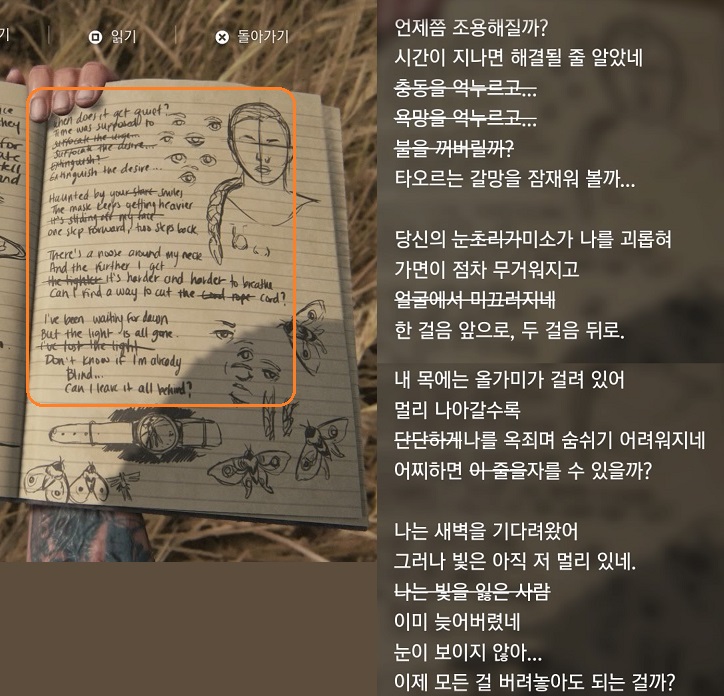 기
읽기
돌아가기
When does it get quiet?
Time was supposed to
Suffocate the urge...
Suffocate the desire...
Extinguish?
Extinguish the desire...
Haunted by your stare smiles
The mask keeps getting heavier
it's sliding off my face
one step forward, two steps back
There's a noose around my neck
And the further I get
the tighter it's harder and harder to breathe
Can I find a way to cut the cord rope cord?
I've been waiting for dawn
But the light is all gone.
I've lost the light
Don't know if I'm already
Blind...
Can I leave it all behind?
언제쯤 조용해질까?
시간이 지나면 해결될 줄 알았네
충동을 억누르고...
욕망을 억누르고...
불을 꺼버릴까?
타오르는 갈망을 잠재워 볼까...
당신의 눈초리가미소가 나를 괴롭혀
가면이 점차 무거워지고
얼굴에서 미끄러지네
한 걸음 앞으로, 두 걸음 뒤로.
내 목에는 올가미가 걸려 있어
멀리 나아갈수록
단단하게나를 옥죄며 숨쉬기 어려워지네
어찌하면 이 줄을자를 수 있을까?
나는 새벽을 기다려왔어
그러나 빛은 아직 저 멀리 있네.
나는 빛을 잃은 사람
이미 늦어버렸네
눈이 보이지 않아...
이제 모든 걸 버려놓아도 되는 걸까?